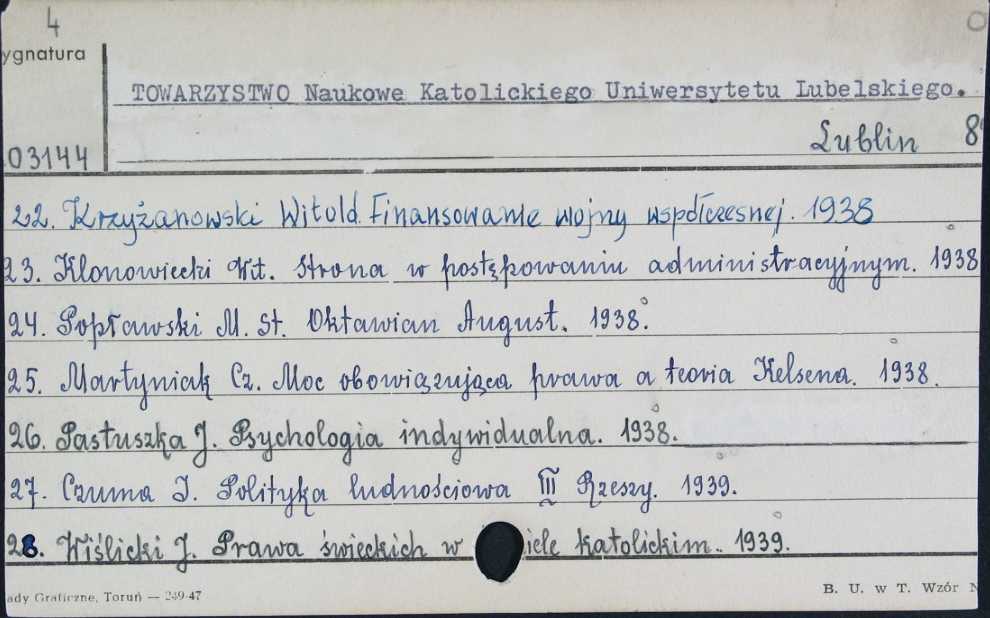 4
ygnatura
TOWARZYSTWO Naukowe Katolickiego Uniwersytetu Lubelskiego.
Lublin 8°
03144
22. Krzyżanowski Witold. Finansowanie wojny współczesnej. 1938
23. Klonowiecki Wit. Strona w postępowaniu administracyjnym. 1938
24. Popławski M. St. Oktawian August. 1938.
25. Martyniak Cz. Moc obowiązująca prawa a teoria Kelsena. 1938.
26. Pastuszka J. Psychologia indywidualna. 1938.
27. Czuma I. Polityka ludnościowa III Rzeszy. 1939.
28. Wiślicki J. Prawa świeckich w iele katolickim. 1939.
ady Graficzne, Toruń — 249-47
B. U. w T. Wzór N